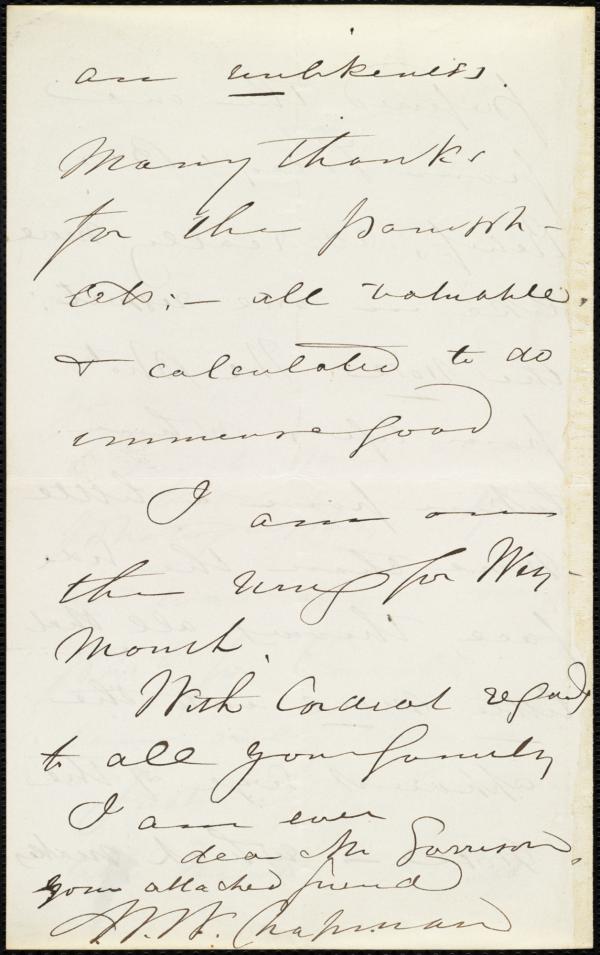 an unlikeness.
Many thanks
for the pamph-
lets: - all valuable,
& calculated to do
immense good
I am on
the wing for Wey-
mouth.
With Cordial regards
to all your family
I am ever
dear Mr Garrison,
your attached friend
M. W. Chapman